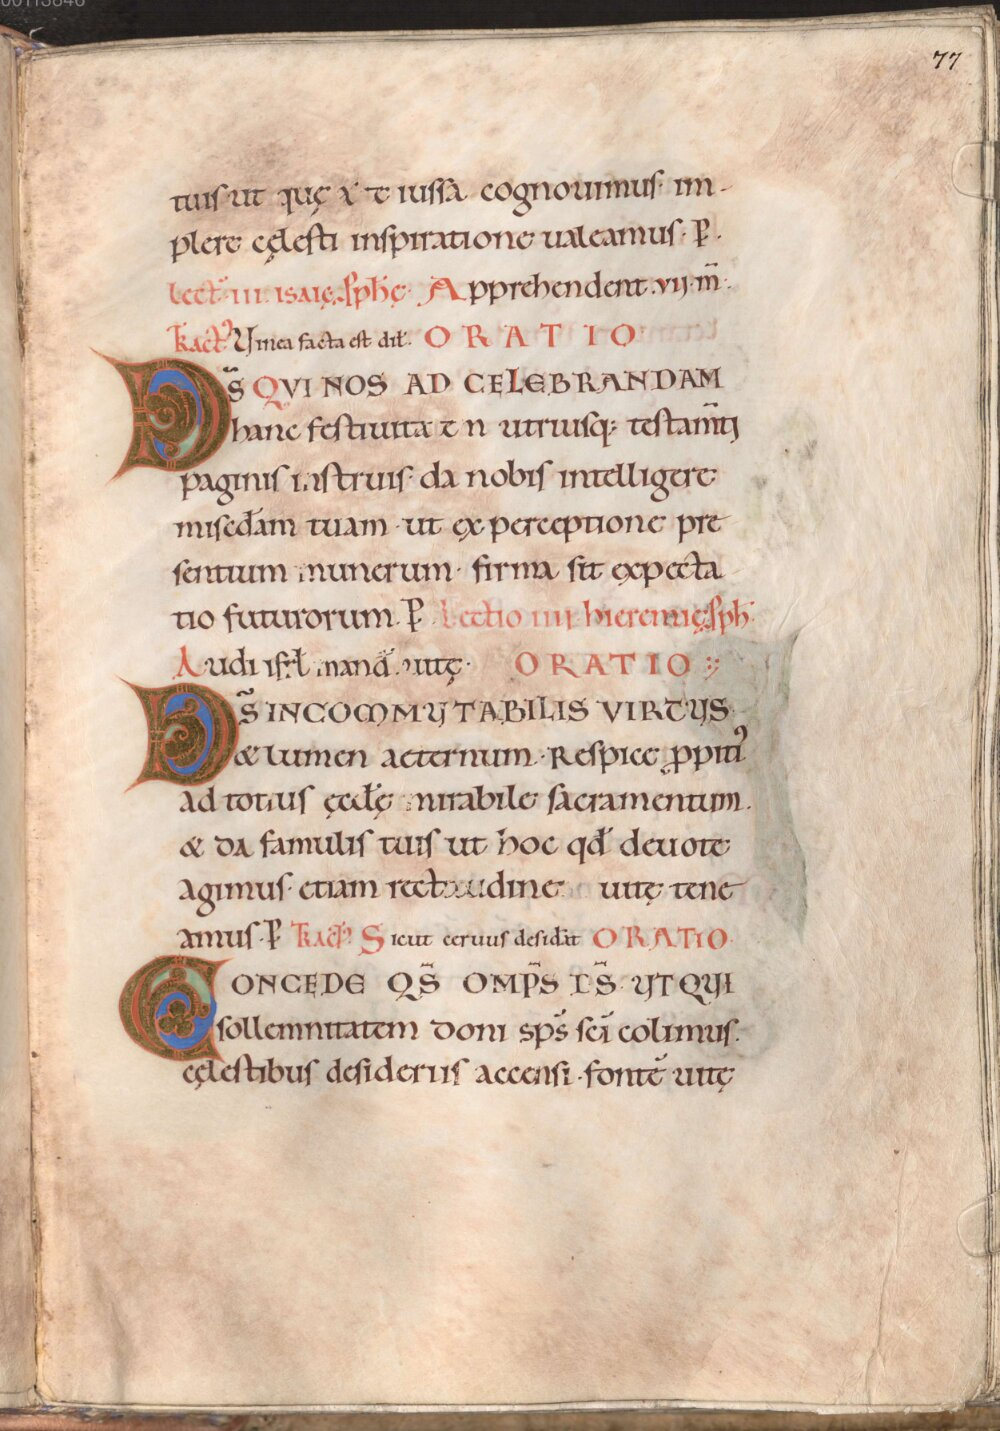 77
tuis ut quę te iussa cognouimus im-
plere cęlesti inspiratione ualeamus· P̄·
Lect̄· III· ISAIĘ P̄PH̄Ę· Apprehendent ·vij· m̄·
TRACT̄' Vinea facta est dil̄· ORATIO
DS̄ QVI NOS AD CELEBRANDAM
hanc festiuitatē n utriusq; testam̄tj
paginis instruis· da nobis intelligere
misēdam tuam· ut ex perceptione pre
sentium munerum· firma sit expecta
tio futurorum· P̄ Lectio IIII hieremię p̄ph̄·
Audi isr̄l mand̄· uitę· ORATIO
DS̄ INCOMMUTABILIS VIRTUS
& lumen aeternum· Respice ꝓpiti'
ad totius ęcclę mirabile sacramentum·
& da famulis tuis ut hoc qd̄ deuote
agimus· etiam rectitudine uitę tene
amus· P̄ TRACT̄' Sicut ceruus desid̄at ORATIO
CONCEDE QS̄ OMPS̄ DS̄· UT QUI
sollemnitatem doni sp̄s sc̄i colimus·
cęlestibus desideriis accensi· fontē uitę